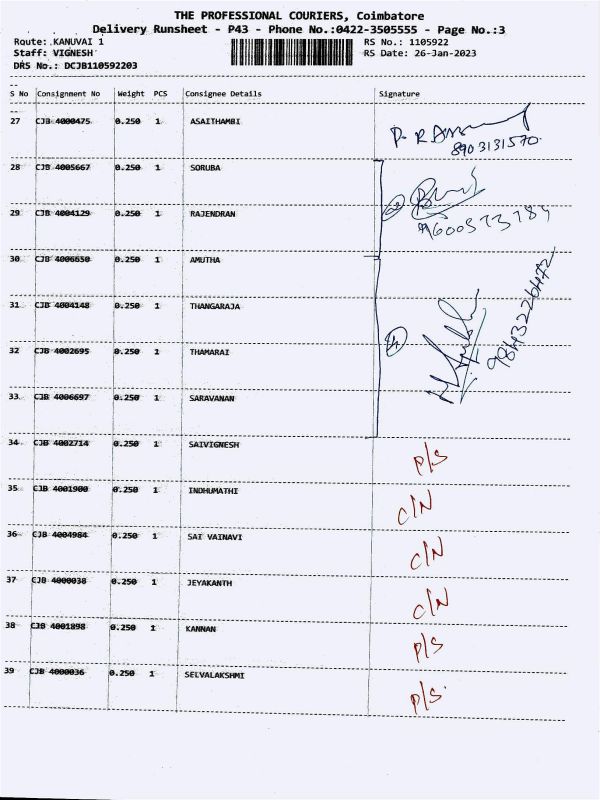 THE PROFESSIONAL COURIERS, Coimbatore
Delivery Runsheet - P43 - Phone No.:0422-3505555 - Page No.:3
Route: KANUVAI 1 RS No.: 1105922
Staff: VIGNESH RS Date: 26-Jan-2023
DRS No.: DCJB110592203
S No Consignment No Weight PCS Consignee Details Signature
27 CJB 4000475 0.250 1 ASAITHAMBI
8903131570
28 CJB 4005667 0.250 1 SORUBA
29 CJB 4004129 0.250 1 RAJENDRAN
30 CJB 4006650 0.250 1 AMUTHA
31 CJB 4004148 0.250 1 THANGARAJA
9843226472
32 CJB 4002695 0.250 1 THAMARAI
33 CJB 4006697 0.250 1 SARAVANAN
34 CJB 4002714 0.250 1 SAIVIGNESH P/S
35 CJB 4001900 0.250 1 INDHUMATHI C/N
36 CJB 4004984 0.250 1 SAI VAINAVI C/N
37 CJB 4000038 0.250 1 JEYAKANTH C/N
38 CJB 4001898 0.250 1 KANNAN P/S
39 CJB 4000036 0.250 1 SELVALAKSHMI P/S